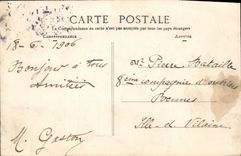 CARTE POSTALE
La Correspondance au recto n'est pas acceptée par tous pays étrangers
CORRESPONDANCE
ADRESSE
18-6-1906
Bonjour à tous
Amitiés
M. Gaston
Mr Pierre Bataille
8ème compagnie d'ouvriers
Rennes
Ille et Vilaine